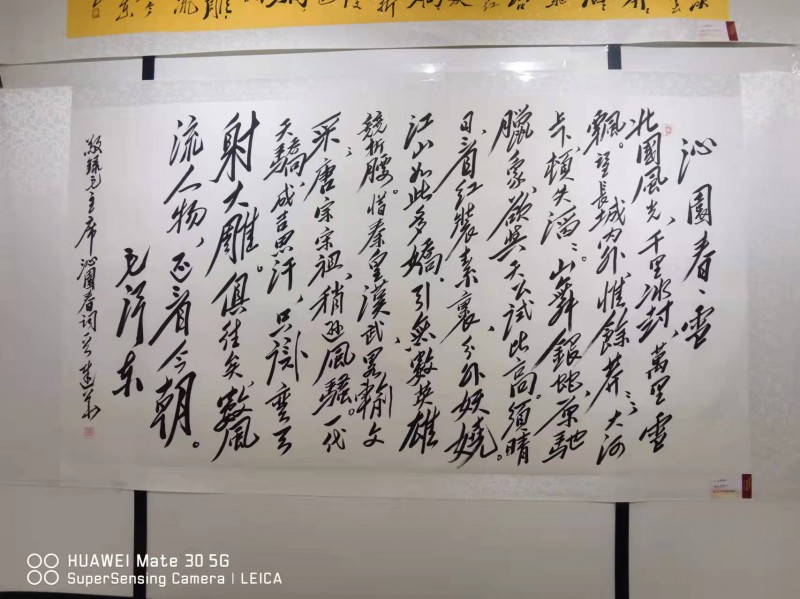 沁園春、雪
北國風光，千里冰封，萬里雪
飄。望長城内外，惟餘莽〻大河
上下，頓失滔〻。山舞銀蛇，原馳
臘象，欲與天公試比高。須晴
日，看紅裝素裹，分外妖嬈。
江山如此多嬌，引無數英雄
競折腰。惜秦皇漢武，略輸文
采，唐宗宋祖，稍遜風騷。一代
天驕，成吉思汗，只識彎弓
射大雕。俱往矣，數風
流人物，还看今朝。
毛泽东
敬録毛主席沁園春词
HUAWEI Mate 30 5G
SuperSensing Camera | LEICA